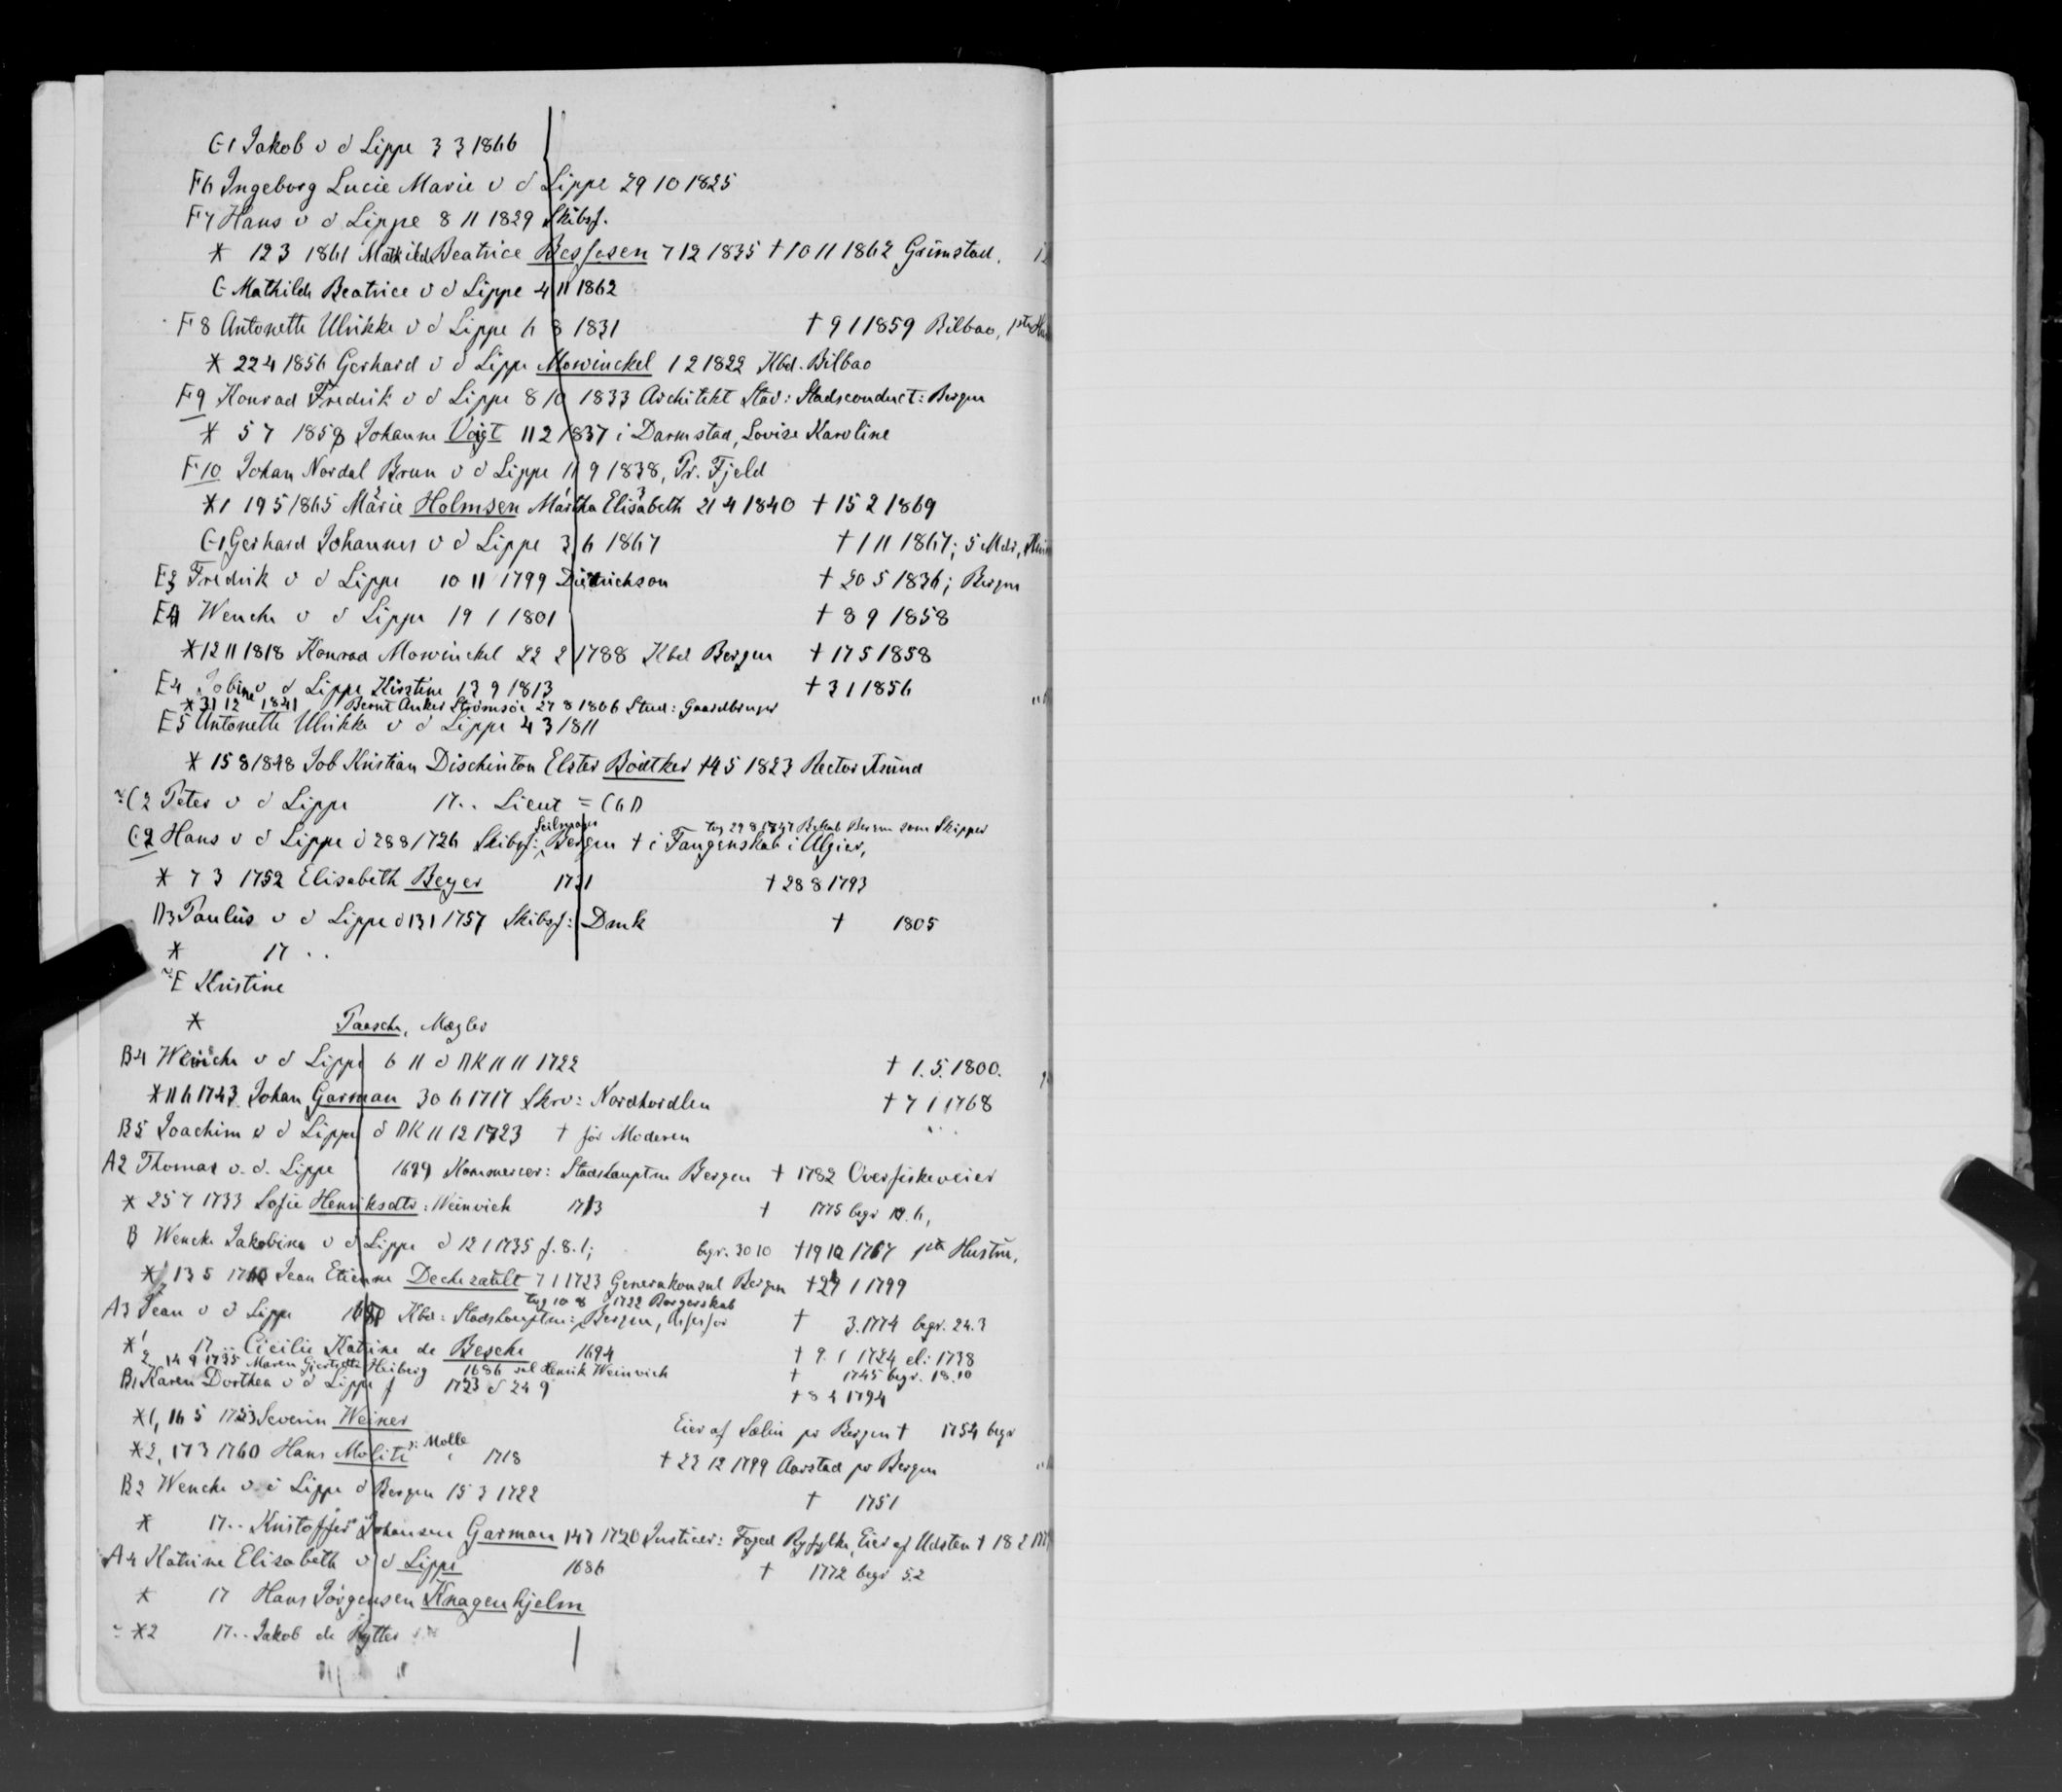 G1 Jakob v d Lippe 3 3 1866
F6 Ingeborg Lucie Marie v d Lippe 29 10 1825
F7 Hans v d Lippe 8 11 1829 Skibsf.
* 12 3 1861 Mathilde Beatrice Bessesen 7 12 1835 † 10 11 1862 Grimstad.
G Mathilde Beatrice v d Lippe 4 11 1862
F8 Antonette Ulrikke v d Lippe 6 8 1831 † 9 1 1859 Bilbao, 1ste
* 22 4 1856 Gerhard v d Lippe Mowinckel 1 2 1822 Kbd. Bilbao
F9 Konrad Fredrik v d Lippe 8 10 1833 Architekt Stav: Stadsconduct: Bergen
* 5 7 1858 Johanne Voigt 11 2 1837 i Darmstad, Lovise Karoline
F10 Johan Nordal Brun v d Lippe 11 9 1838, Pr. Fjeld
*1 19 5 1865 Marie Holmsen Martha Elisabeth 21 4 1840 † 15 2 1869
G1 Gerhard Johannes v d Lippe 3 6 1867 † 1 11 1867; 5 Mdr,
E3 Fredrik v d Lippe 10 11 1799 Dietrichson † 20 5 1836; Bergen
E4 Wenche v d Lippe 19 1 1801 † 8 9 1858
* 12 11 1818 Konrad Mowinckel 22 2 1788 Kbd Bergen † 17 5 1858
E4 Jobine v d Lippe Kirstine 13 9 1813 † 3 1 1856
* 31 12 1841 Bernt Anker Strømsøe 27 8 1806 Stud: Gaardbruger
E5 Antonette Ulrikke v d Lippe 4 3 1811
* 15 8 1848 Job Kristian Dischinton Elster Böidtker 14 5 1823 Rector Krsund
~ C2 Peter v d Lippe 17.. Lieut = C6D
C2 Hans v d Lippe d 28 8 1726 Skibsf: Seilmager Bergen † i Fangenskab i Algier, tog 29 8 1747 Bskab Bergen som Skipper
* 7 3 1752 Elisabeth Beyer 1731 † 28 8 1793
D3 Paulus v d Lippe d 13 1 1757 Skibsf: Dmk † 1805
* 17 ..
~ E Kristine
* Paasche, Mægler
B4 Wenche v d Lippe 6 11 d DK 11 11 1722 † 1.5.1800.
* 11 6 1743 Johan Garman 30 6 1717 Skrv: Nordhordlen † 7 1 1768
B5 Joachim v d Lippe d DK 11 12 1723 † før Moderen
A2 Thomas v. d. Lippe 1679 Kommercer: Stadshauptm Bergen † 1782 Overfiskeveier
* 25 7 1733 Sofie Henriksdtr: Weinvich 1713 † 1775 begr 19. 6,
B Wenche Jakobine v d Lippe d 12 1 1735 f. 8. 1; begr. 30 10 † 19 10 1767 1ste Hustru.
* 13 5 1760 Jean Etienne Dechezaült 7 1 1723 Generakonsul Bergen † 29 1 1799
A3 Jean v d Lippe 1680 Kbd: Stadshauptm: Bergen, Assessor tog 10 8 1722 Borgerskab † 3.1774 begr. 24.3
*1 17.. Cicilie Katrine de Besche 1694 † 9. 1 1724 el: 1738
2, 14 9 1735 Maren Gjertsdtr Heiberg 1686 Henrik Weinvich † 1745 begr. 18.10
B1 Karen Dorthea v d Lippe f 1723 d 24 9 † 8 4 1794
*1, 16 5 1753 Severin Weiner Eier af Sælen pr Bergen † 1754 begr
*2, 17 3 1760 Hans Moliti ɔ: Molle 1718 † 22 12 1799 Aarstad pr Bergen
B2 Wenche v. d Lippe d Bergen 15 3 1722 † 1751
* 17.. Kristoffer Johansen Garman 14 7 1720 Justicer: Foged Ryfylke, Eier af Utsten † 18 2
A4 Katrine Elisabeth v d Lippe 1686 † 1772 begr 5.2
* 17 Hans Jørgensen Knagenhjelm
~ *2 17.. Jakob de Rytter